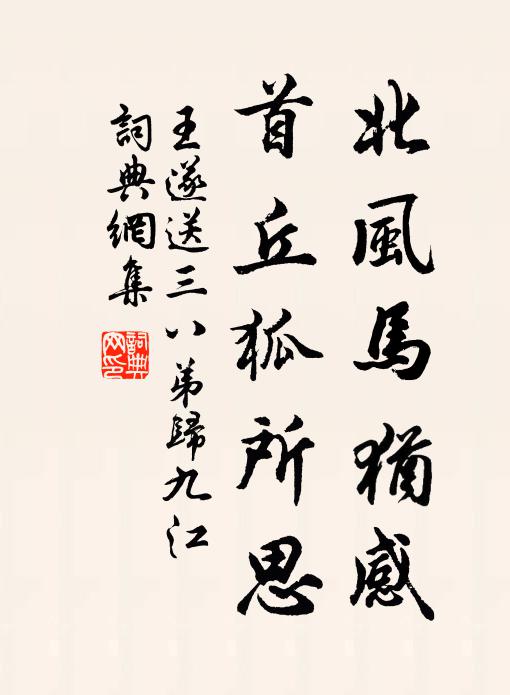 北風馬猶感
首丘狐所思
王遂送三八弟歸九江
詞典網集
詞典網印